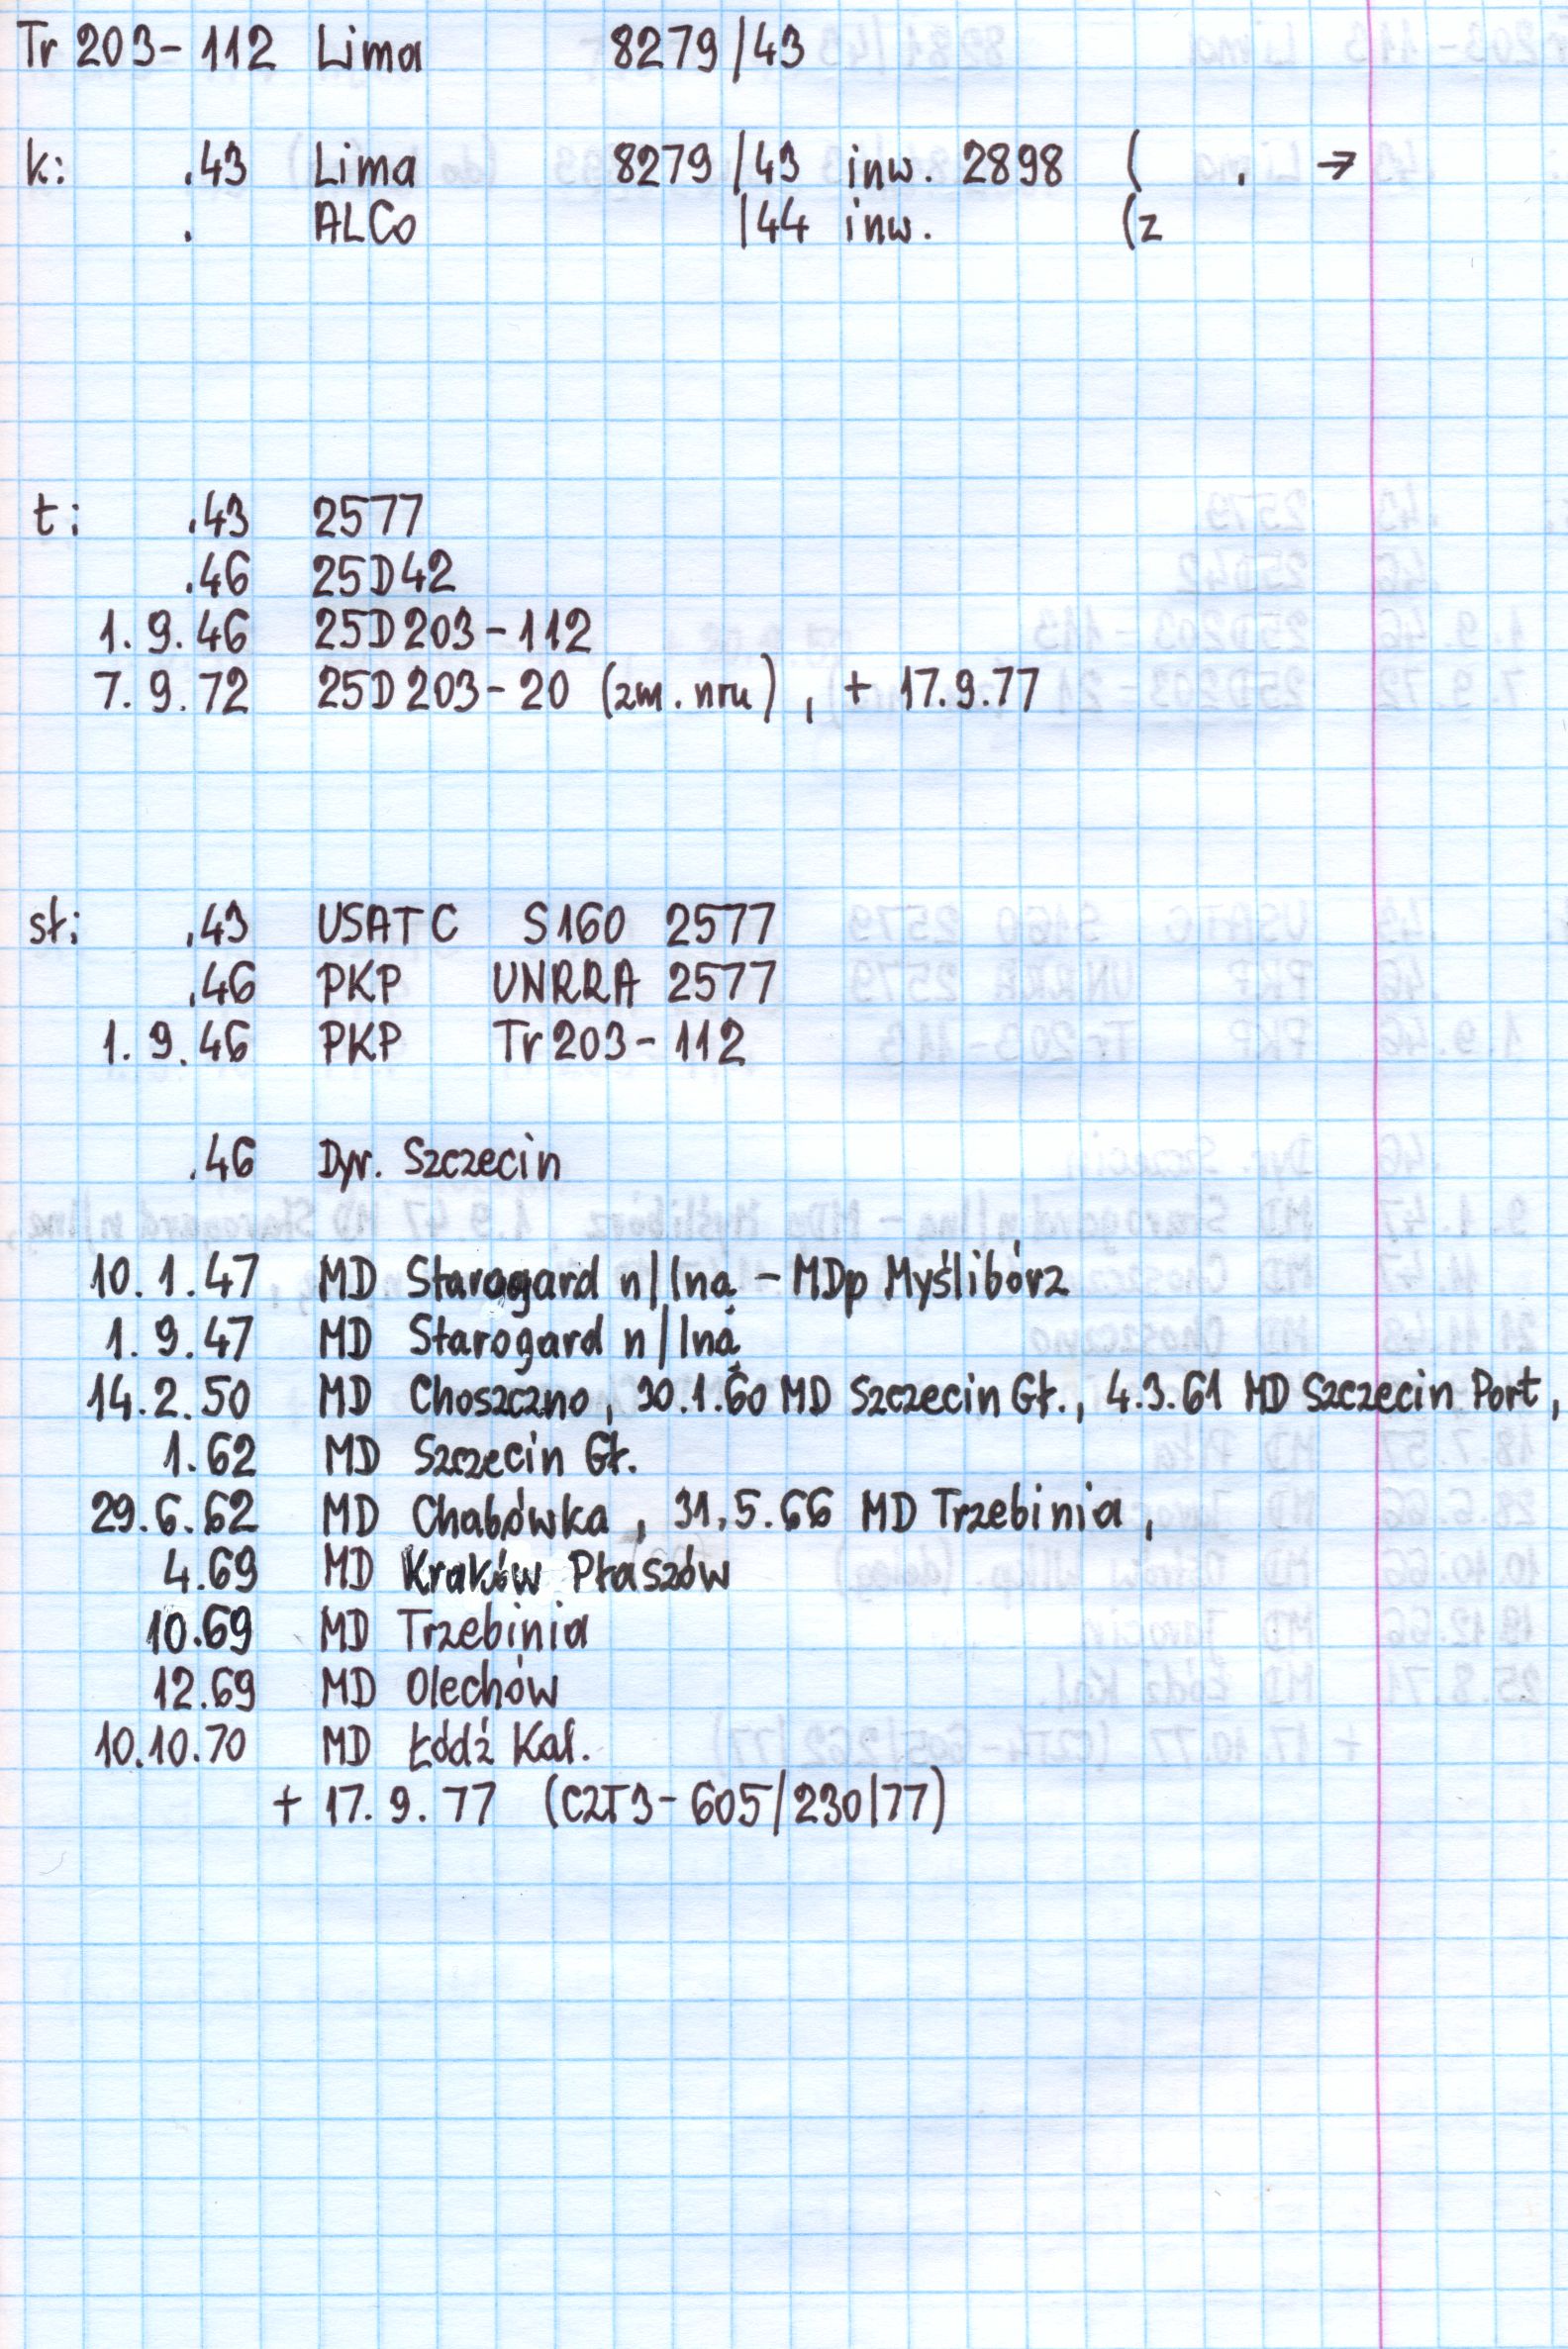 Tr 203-112 Lima 8279/43
k: .43 Lima 8279/43 inw. 2898 ( . →
. ALCo /44 inw. (z
t: .43 2577
.46 25D42
1.9.46 25D203-112
7.9.72 25D203-20 (zm. nru), + 17.9.77
sł: .43 USATC S160 2577
.46 PKP UNRRA 2577
1.9.46 PKP Tr203-112
.46 Dyr. Szczecin
10.1.47 MD Starogard n/Iną - MDp Myślibórz
1.9.47 MD Starogard n/Iną
14.2.50 MD Choszczno, 30.1.60 MD Szczecin Gł., 4.3.61 MD Szczecin Port,
1.62 MD Szczecin Gł.
29.6.62 MD Chabówka, 31.5.66 MD Trzebinia,
4.69 MD Kraków Płaszów
10.69 MD Trzebinia
12.69 MD Olechów
10.10.70 MD Łódź Kal.
+ 17.9.77 (CZT3-605/230/77)